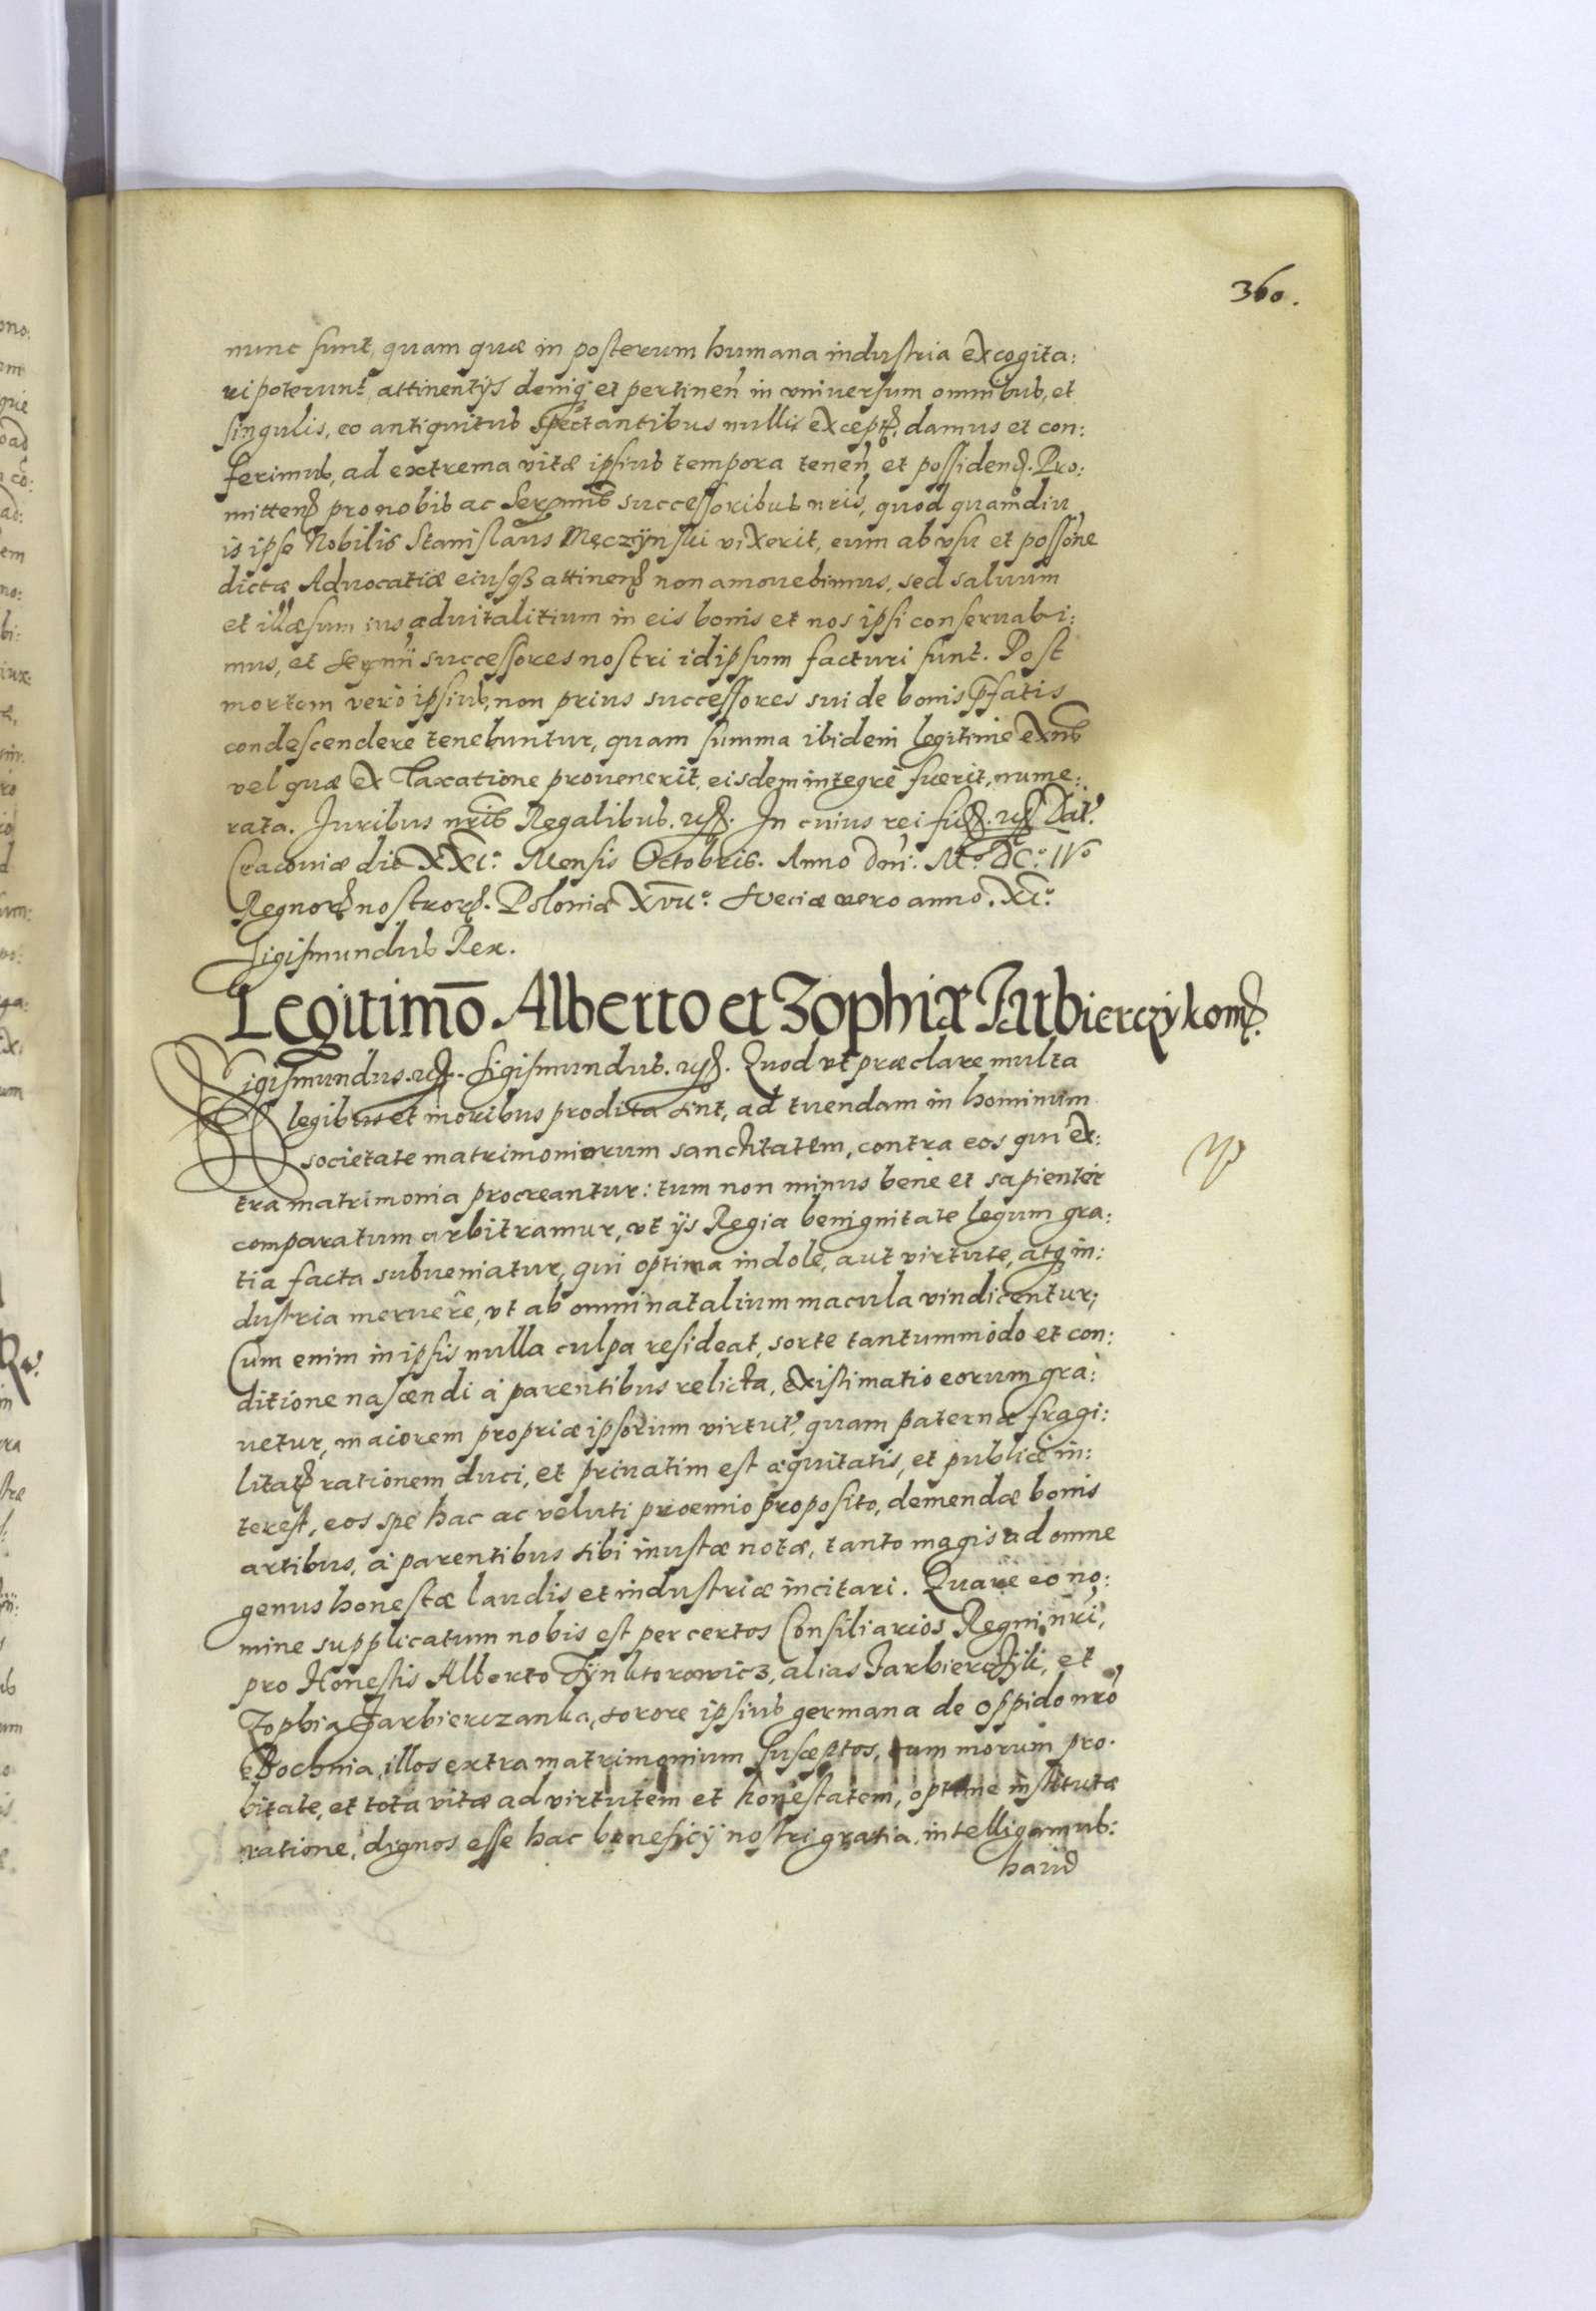 360.
nunc sunt, quam quæ in posterum humana industria excogita:
ri poterunt, attinentijs deniq et pertinen in vniuersum omnibus, et
singulis, eo antiquitus spectantibus nullis except. damus et con:
ferimus, ad extrema vitæ ipsius tempora tenen et possiden. Pro:
mitten pro nobis ac Sermis successoribus nris, quod quamdiu
is ipse Nobilis Stanislaus Męczÿnski vixerit, eum ab vsu et possone
dictæ Aduocatiæ eiusq attinen non amouebimus, sed saluum
et illæsum ius aduitalitium in eis bonis et nos ipsi conseruabi:
mus, et sermi successores nostri idipsum facturi sunt. Post
mortem vero ipsius, non prius successores sui de bonis pfatis
condescendere tenebuntur, quam summa ibidem legitime exns
vel quæ ex taxatione prouenerit, eisdem integre fuerit, nume:
rata. Juribus nris Regalibus. In cuius rei fid. Dat.
Cracouiæ die XXI.º Mensis Octobris. Anno Dni. M.º DC.º IVº
Regnor nostror. Poloniæ XVII.º Sueciæ vero anno. XI.º
Sigismundus Rex.
Legitimo Alberto et Zophiæ Jarbierczykom.
Sigismundus. Sigismundus. Quod vt præclare multa
legibus et moribus prodita sint, ad tuendam in hominum
societate matrimoniorum sanctitatem, contra eos qui ex:
tra matrimonia procreantur: tum non minus bene et sapienter
comparatum arbitramur, vt ijs Regia benignitate legum gra:
tia facta subueniatur, qui optima indole, aut virtute, atq in:
dustria meruere, vt ab omni natalium macula vindicentur;
Cum enim in ipsis nulla culpa resideat, sorte tantummodo et con:
ditione nascendi à parentibus relicta, existimatio eorum gra:
uetur, maiorem propriæ ipsorum virtut, quam paternæ fragi:
litat rationem duci, et priuatim est æquitatis, et publice in:
terest, eos spe hac ac veluti proemio proposito, demendæ bonis
artibus, à parentibus sibi inustæ notæ, tanto magis ad omne
genus honestæ laudis et industriæ incitari. Quare eo no:
mine supplicatum nobis est per certos Consiliarios Regni nri,
pro Honestis Alberto Fÿnktorowicz, alias Jarbierczÿk, et
Zophia Jarbierczanka, sorore ipsius germana de oppido nro
Bochnia, illos extra matrimonium susceptos, cum morum pro.
bitate, et tota vitæ ad virtutem et honestatem, optime institutæ
ratione, dignos esse hac beneficij nostri gratia, intelligamus:
haud